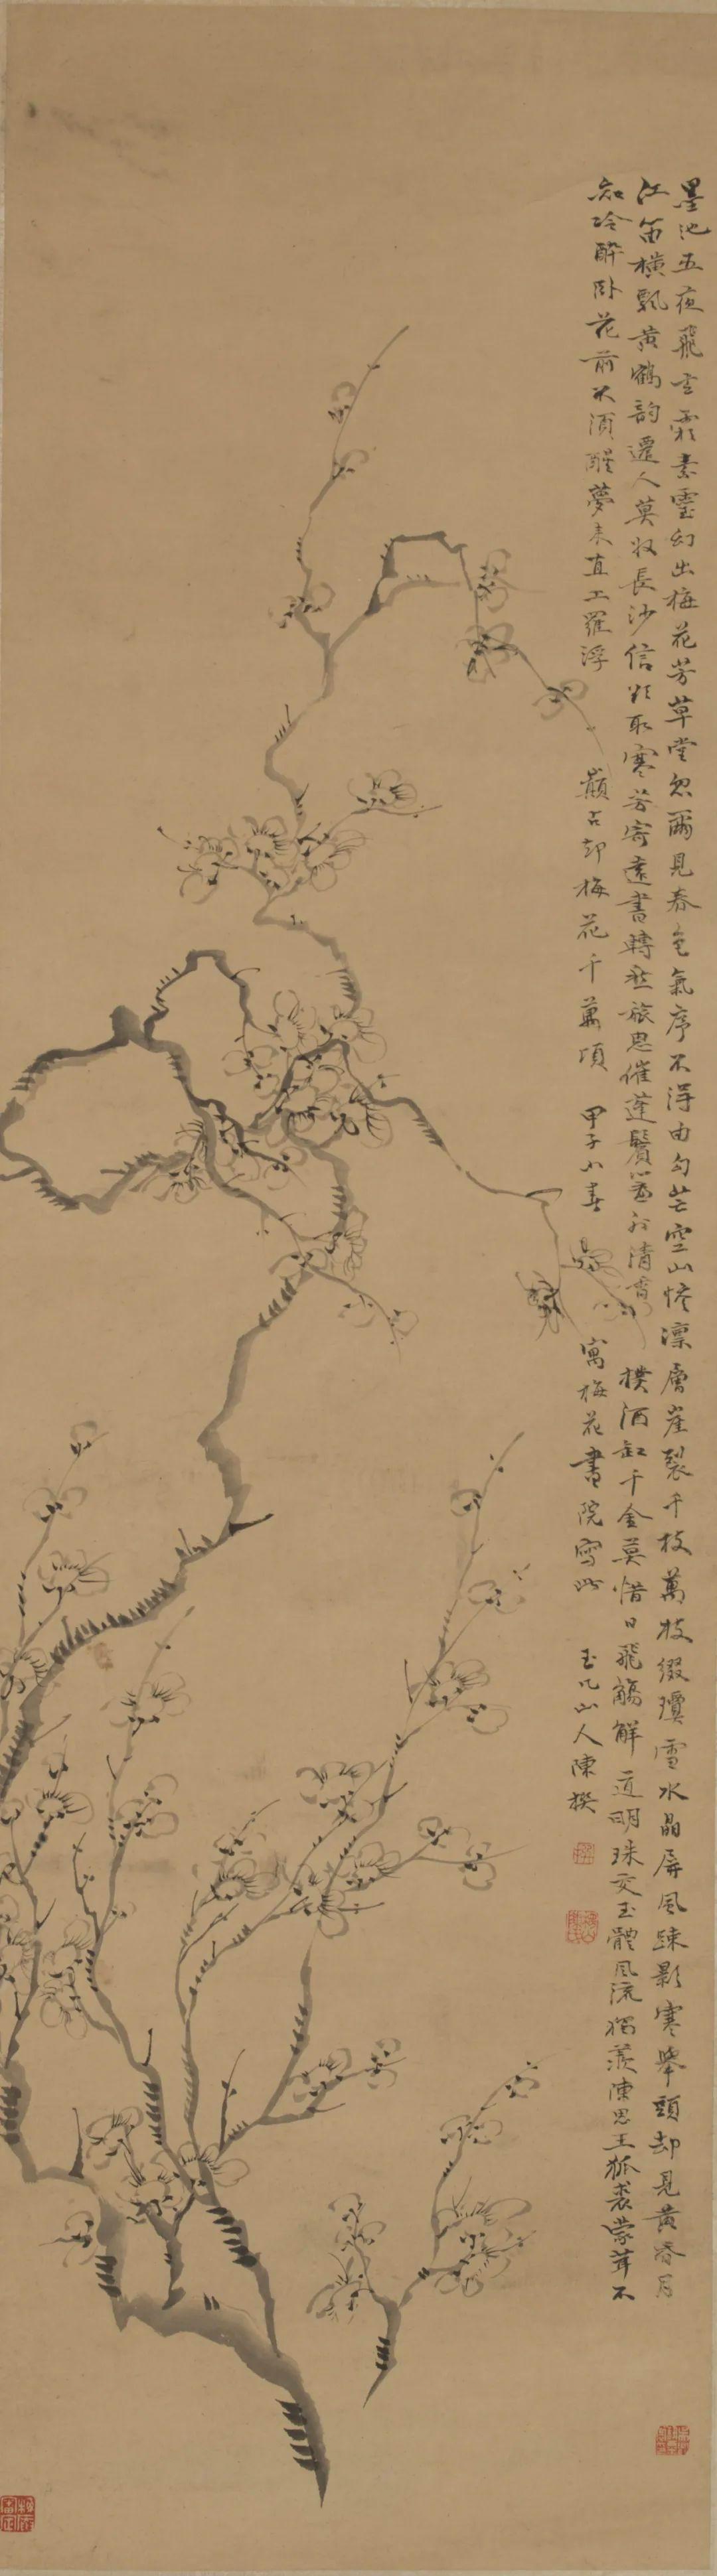 墨池五夜飛玄霜素靈幻出梅花芳草堂忽爾見春色氣序不得由勾芒空山慘凛層崖裂千枝萬枝綴瓊雪水晶屏風疎影寒舉頭却見黃昏月
江笛橫飄黃鶴韵遷人莫收長沙信 取寒芳寄遠書轉愁旅思催蓬鬢 清香撲酒缸千金莫惜日飛觴解道明珠交玉體風流獨羨陳思王狐裘蒙茸不
知冷醉臥花前不須醒夢來直上羅浮巔占却梅花千萬頃 甲子小春 寓梅花書院寫此 玉几山人陳撰